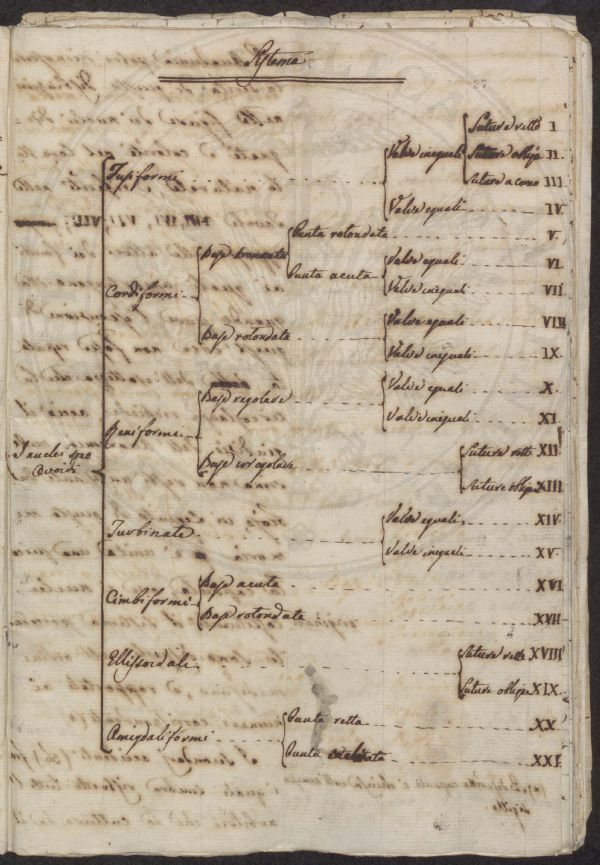 Sistema
27
Suture rette I
Valve ineguali Suture oblique II.
Suture a corno III
Fusiformi
Valve eguali IV.
Punta rotondata V.
Base
Punta acuta Valve eguali VI.
Valve ineguali VII
Cordiformi
Valve eguali VIII
Base rotondata
Valve ineguali IX.
Base regolare Valve eguali X.
Valve ineguali XI.
Reniformi
Base irregolare Suture rette XII
Suture oblique XIII
I nuclei sono
Ovoidi
Turbinate Valve eguali XIV.
Valve ineguali XV.
Base acuta XVI
Cimbiformi Base rotondata XVII
Ellissoidali Suture rette XVIII
Suture oblique XIX.
Punta retta XX.
Amigdaliformi
Punta XXI.